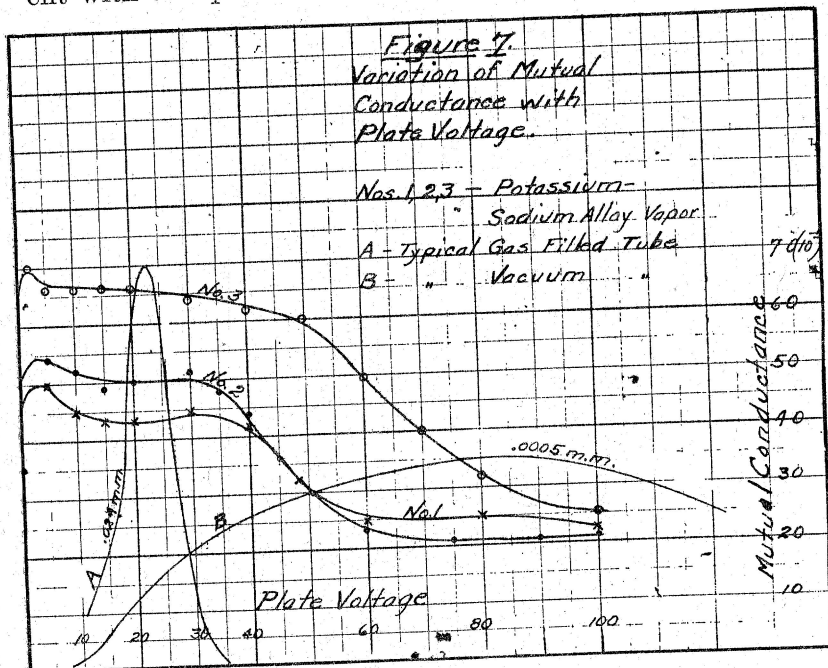 Figure 7.
Variation of Mutual
Conductance with
Plate Voltage.
Nos. 1, 2, 3 - Potassium-
" Sodium Alloy Vapor
A - Typical Gas Filled Tube
B - " Vacuum "
No. 3
No. 2
No. 1
.0005 m.m.
B
A
Plate Voltage
10 20 30 40 60 80 100
Mutual Conductance
60
50
40
30
20
10